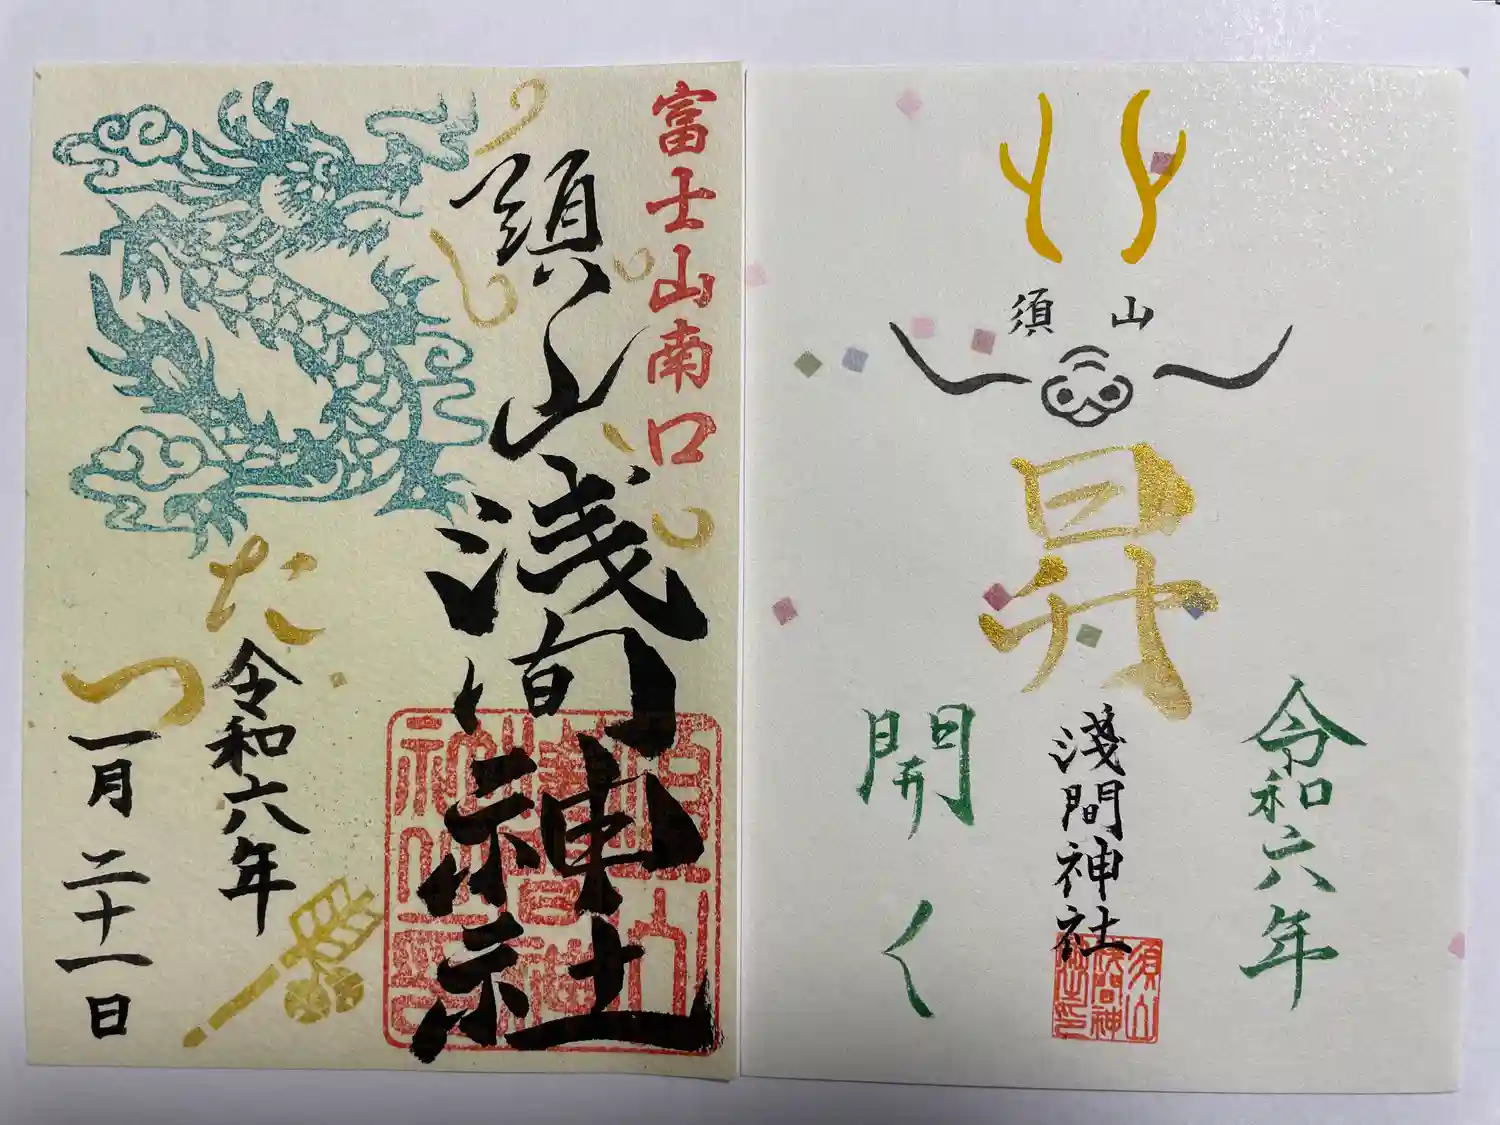 富士山南口
須山浅間神社
たつ
令和六年
一月二十一日
須山
昇
令和六年
淺間神社
開く
須山
浅間神
社之印